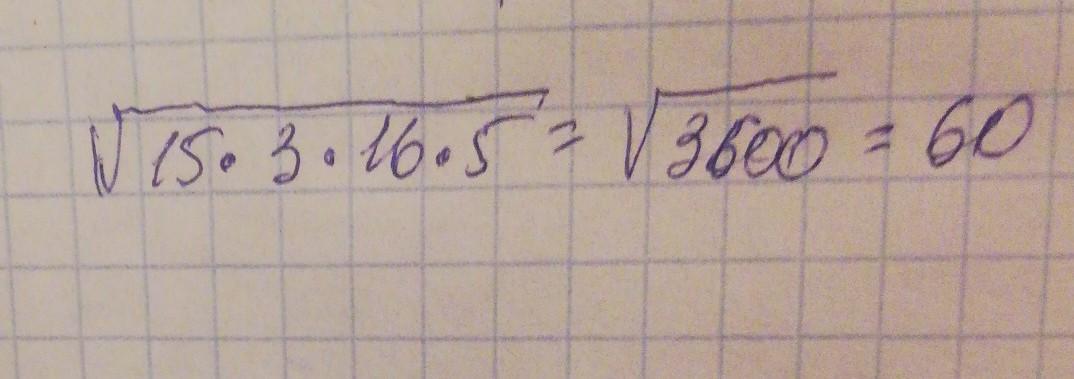 √15·3·16·5 = √3600 = 60